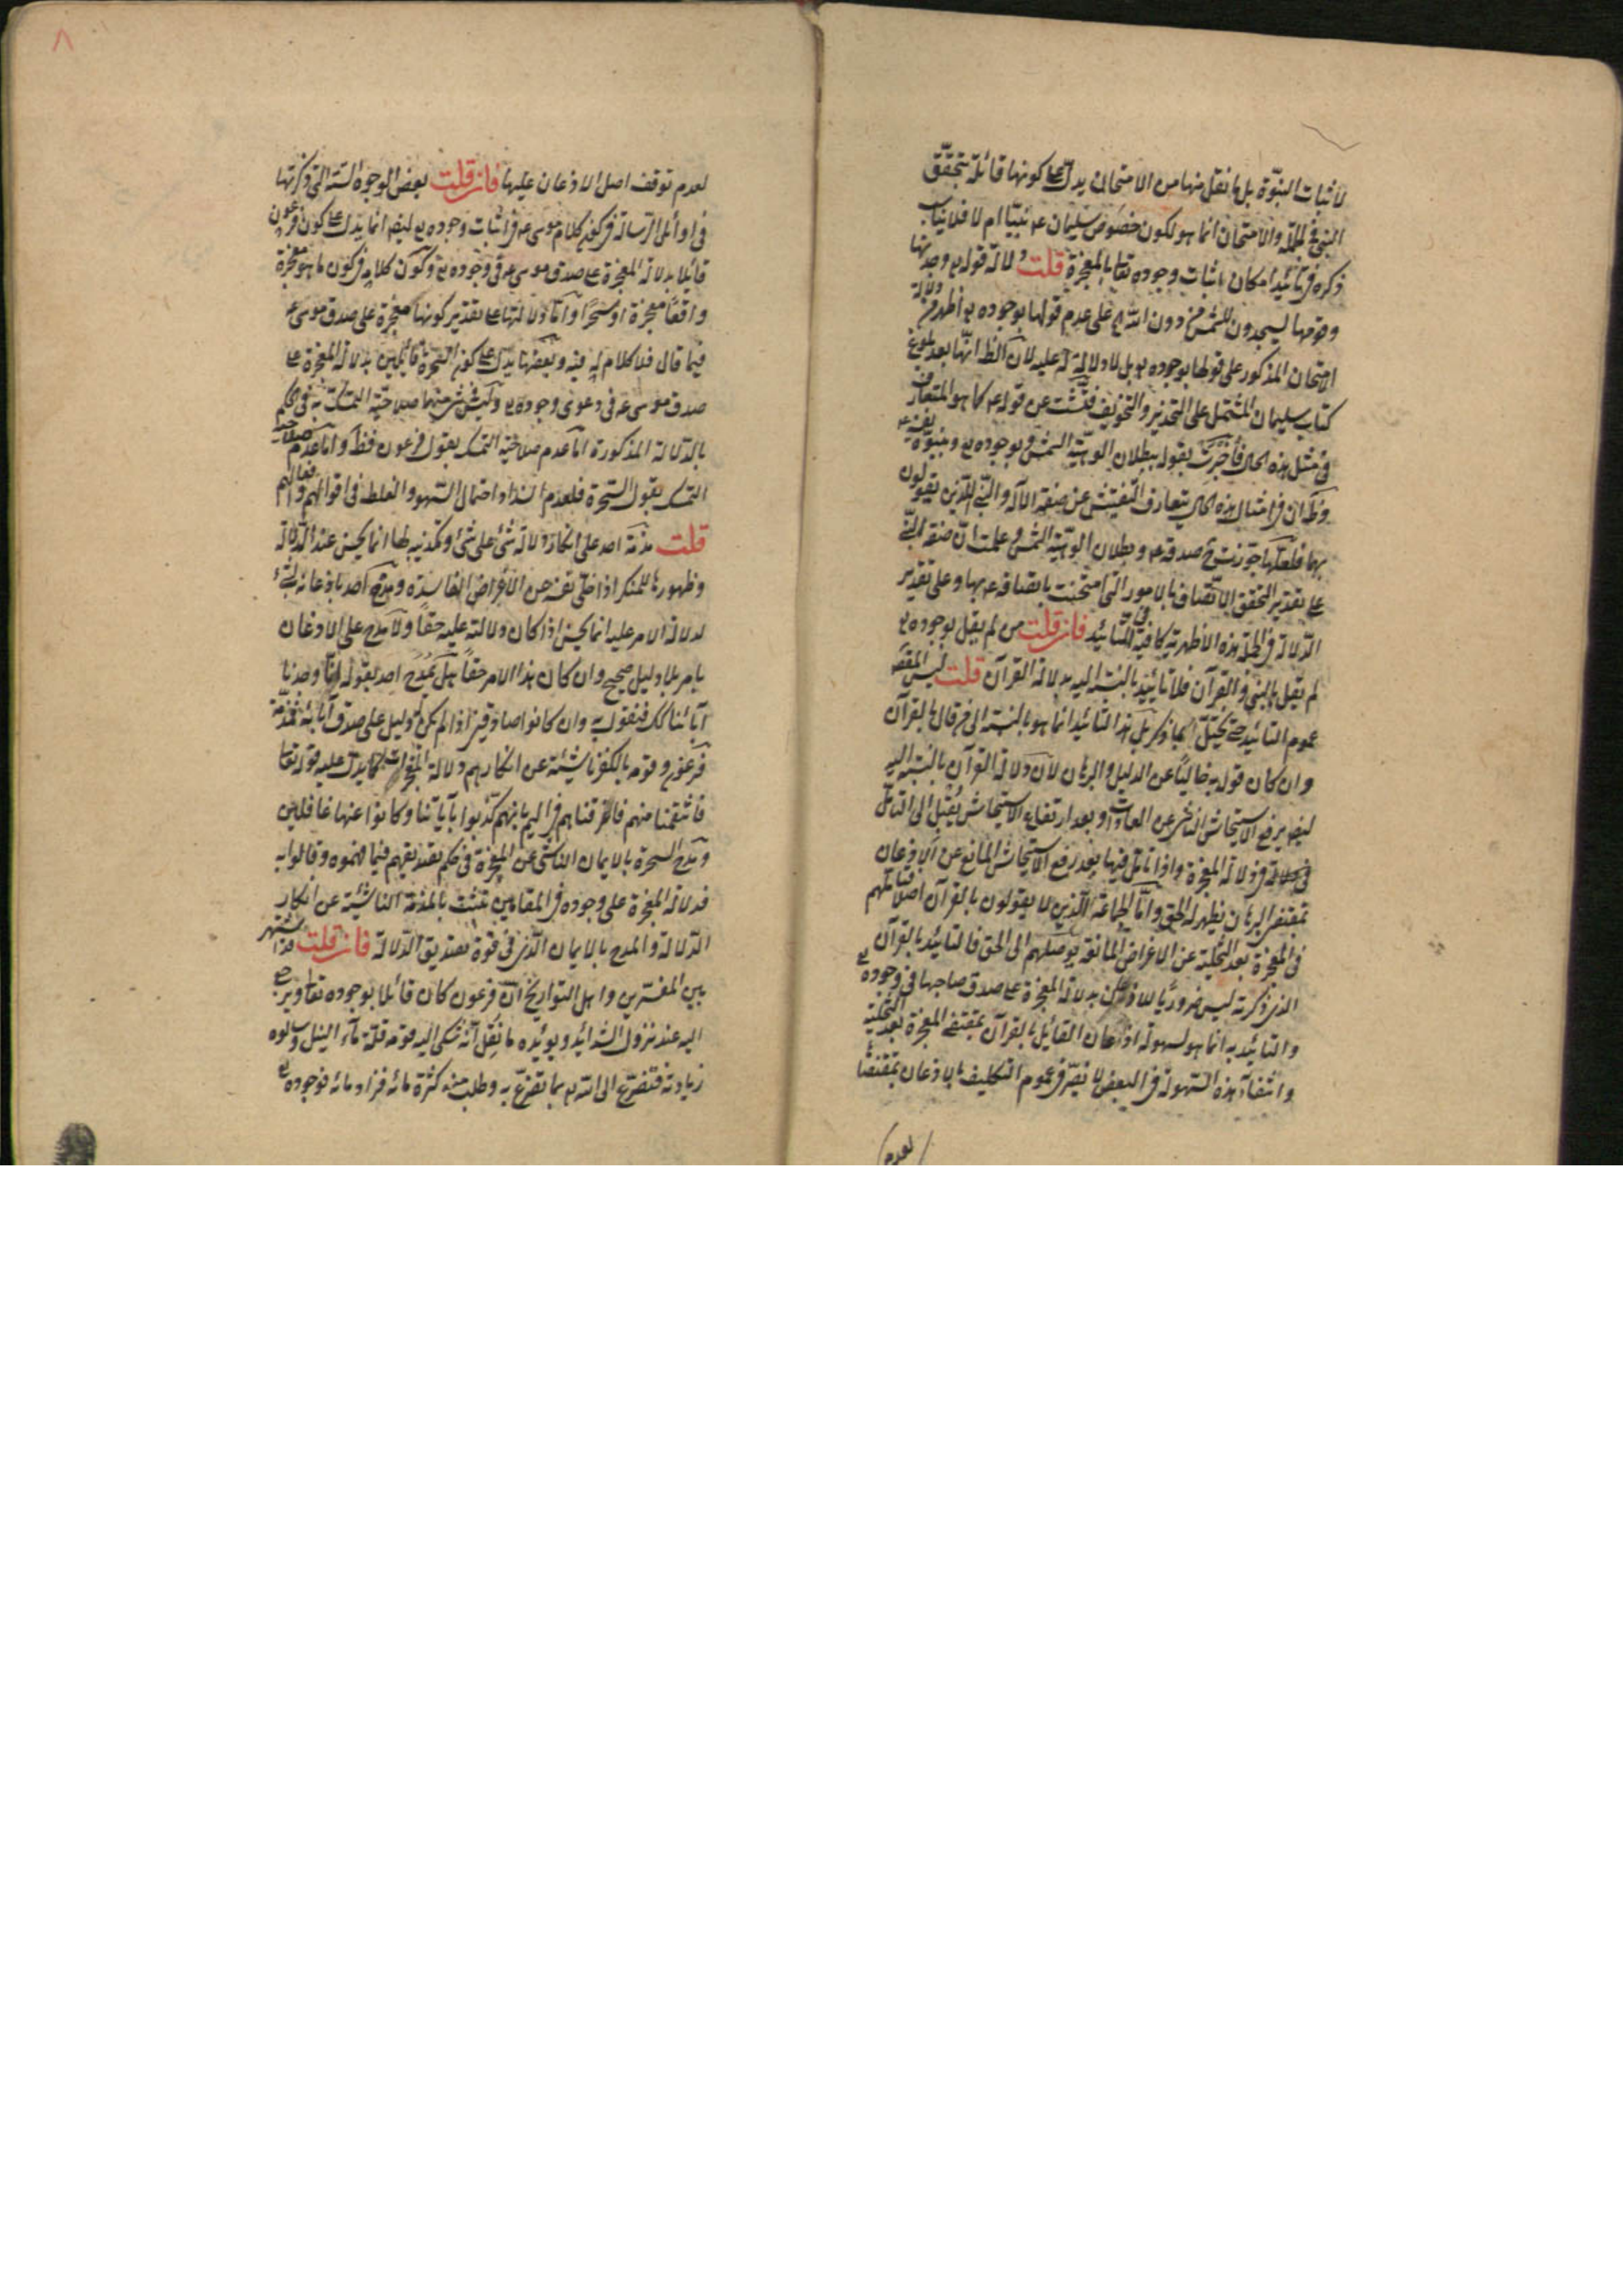 لاثبات النبوّة بل ما نقل منها من الامتحان يدل على كونها قائلة بتحقّق
النبى فى الجملة والامتحان انما هو لكون خصوص سليمان عم نبيّا ام لا فلا يناسب
ذكره فى تأئيد امكان اثبات وجوده تعا بالمعجزة قلت دلالة قوله تع وجدتها
وقومها يسجدون للشمس من دون الله على عدم قولها بوجوده تع اظهر من دلالة
الامتحان المذكور على قولها بوجوده تع بل لا دلالة له عليه لان الظ انها بعد بلوغ
كتاب سليمان المشتمل على التحذير والتخويف فتّشت عن قوله عم كما هو المتعارف
فى مثل هذه الحال فأخبرت بقوله ببطلان الوهية الشمس وبوجوده تع وبنبوّة نفسه عم
وكما ان فى امثال هذه الحال يتعارف التفتيش عن صفة الآله والنبى اللذين يقولون
بها فلعلها جوّزت صدقه عم وبطلان الوهية الشمس وعلمت ان صفة النبى
على تقدير التحقق الاتصاف بالامور التى امتحنت باتصافه عم بها وعلى تقدير
الدلالة فى الجملة هذه الاظهرية كافية فى التأئيد فان قلت من لم يقل بوجوده تع
لم يقل بالنبى والقرآن فلا تائيد بالنسبة اليه بدلالة القرآن قلت ليس المقصود
عموم التائيد حتى يختل بما ذكر بل هذا التائيد انما هو بالنسبة الى من قال بالقرآن
وان كان قوله به خاليًا عن الدليل والبرهان لان دلالة القرآن بالنسبة اليه
ايضا يرفع الاستيحاش الناشى عن العادات وبعد ارتفاع الاستيحاش يُقبل الى التأمل
فى دلالة المعجزة واذا تأمل فيها بعد رفع الاستيحاش المانع عن الاذعان
بمقتضى البرهان يظهر له الحق وامّا الجماعة الذين لا يقولون بالقرآن اصلا فتأملهم
فى المعجزة بعد التخلية عن الاغراض المانعة يوصلهم الى الحق فالتائيد بالقرآن
الذى ذكرته ليس ضروريًا للاذعان بدلالة المعجزة على صدق صاحبها فى وجوده تع
والتائيد به انما هو لسهولة اذعان القائل بالقرآن بمقتضى المعجزة بعد التخلية
وانتفاء هذه السهولة فى البعض لا تضر فى عموم التكليف بالاذعان بمقتضاها
لعدم
٨
لعدم توقف اصل الاذعان عليها فان قلت بعض الوجوه الستة التى ذكرتها
فى اوائل الرسالة فى كون كلام موسى عم فى اثبات وجوده تع ايضا انما يدل على كون فرعون
قائلا بدلالة المعجزة على صدق موسى عم فى وجوده تع وكون كلامه فى كون ما هو معجزة
واقعًا معجزة او سحرًا وامّا دلالتها على تقدير كونها معجزة على صدق موسى عم
فيما قال فلا كلام له فيه وبعضها يدل على كون السحرة قائلين بدلالة المعجزة على
صدق موسى عم فى دعوى وجوده تع وليس شئ منهما صلاحية التمسك به فى الحكم
بالدلالة المذكورة اما عدم صلاحية التمسك بقول فرعون فظ واما عدم صلاحية
التمسك بقول السحرة فلعدم السداد احتمال السهو والغلط فى اقوالهم وافعالهم
قلت مذمة احد على انكار دلالة شئ على شئ وتكذيبه لها انما يحسن عند الدلالة
وظهورها للمنكر اذا خلى نفسه عن الاغراض الفاسدة ومدح احد باذعانه لشئ
لدلالة الامر عليه انما يحسن اذا كان دلالته عليه حقًا ولا مدح على الاذعان
بامر بلا دليل صحيح وان كان هذا الامر حقًا هل يُمدح احد بقوله انا وجدنا
آبائنا كك فنقول به وان كانوا صادقين اذا لم يكن له دليل على صدق آبائه فمذمة
فرعون وقومه بالكفر ناشئة عن انكارهم دلالة المعجزات كما يدل عليه قوله تعا
فانتقمنا منهم فاغرقناهم فى اليم بانهم كذبوا بآياتنا وكانوا عنها غافلين
ومدح السحرة بالايمان الناشى عن المعجزة فى حكم تصديقهم فيما فهموه وقالوا به
فدلالة المعجزة على وجوده فى المقامين تثبت بالمذمة الناشئة عن انكار
الدلالة والمدح بالايمان الذى فى قوة تصديق الدلالة فان قلت قد اشتهر
بين المفسرين واهل التواريخ ان فرعون كان قائلا بوجوده تعا ويرجع
اليه عند نزول الشدائد ويؤيده ما نُقل انه شكى اليه قومه قلة ماء النيل وسألوه
زيادته فتضرع الى الله تع بما تضرع به وطلب منه كثرة مائه فزاد مائه فوجوده تع